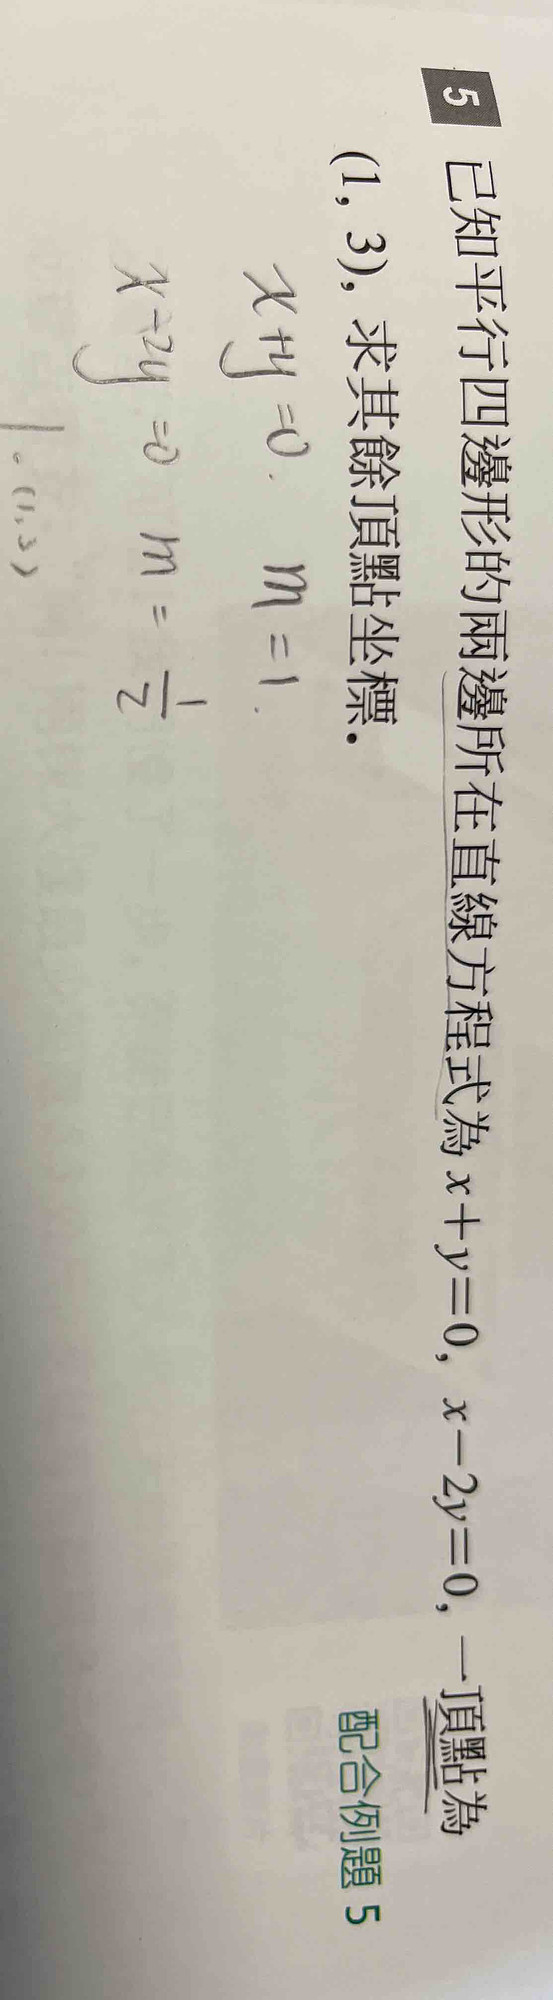 5 已知平行四邊形的兩邊所在直線方程式為 x+y=0, x-2y=0, 一頂點為
(1, 3), 求其餘頂點坐標.
配合例題 5
x+y=0. m=1.
x-2y=0 m=1/2
(1,3)